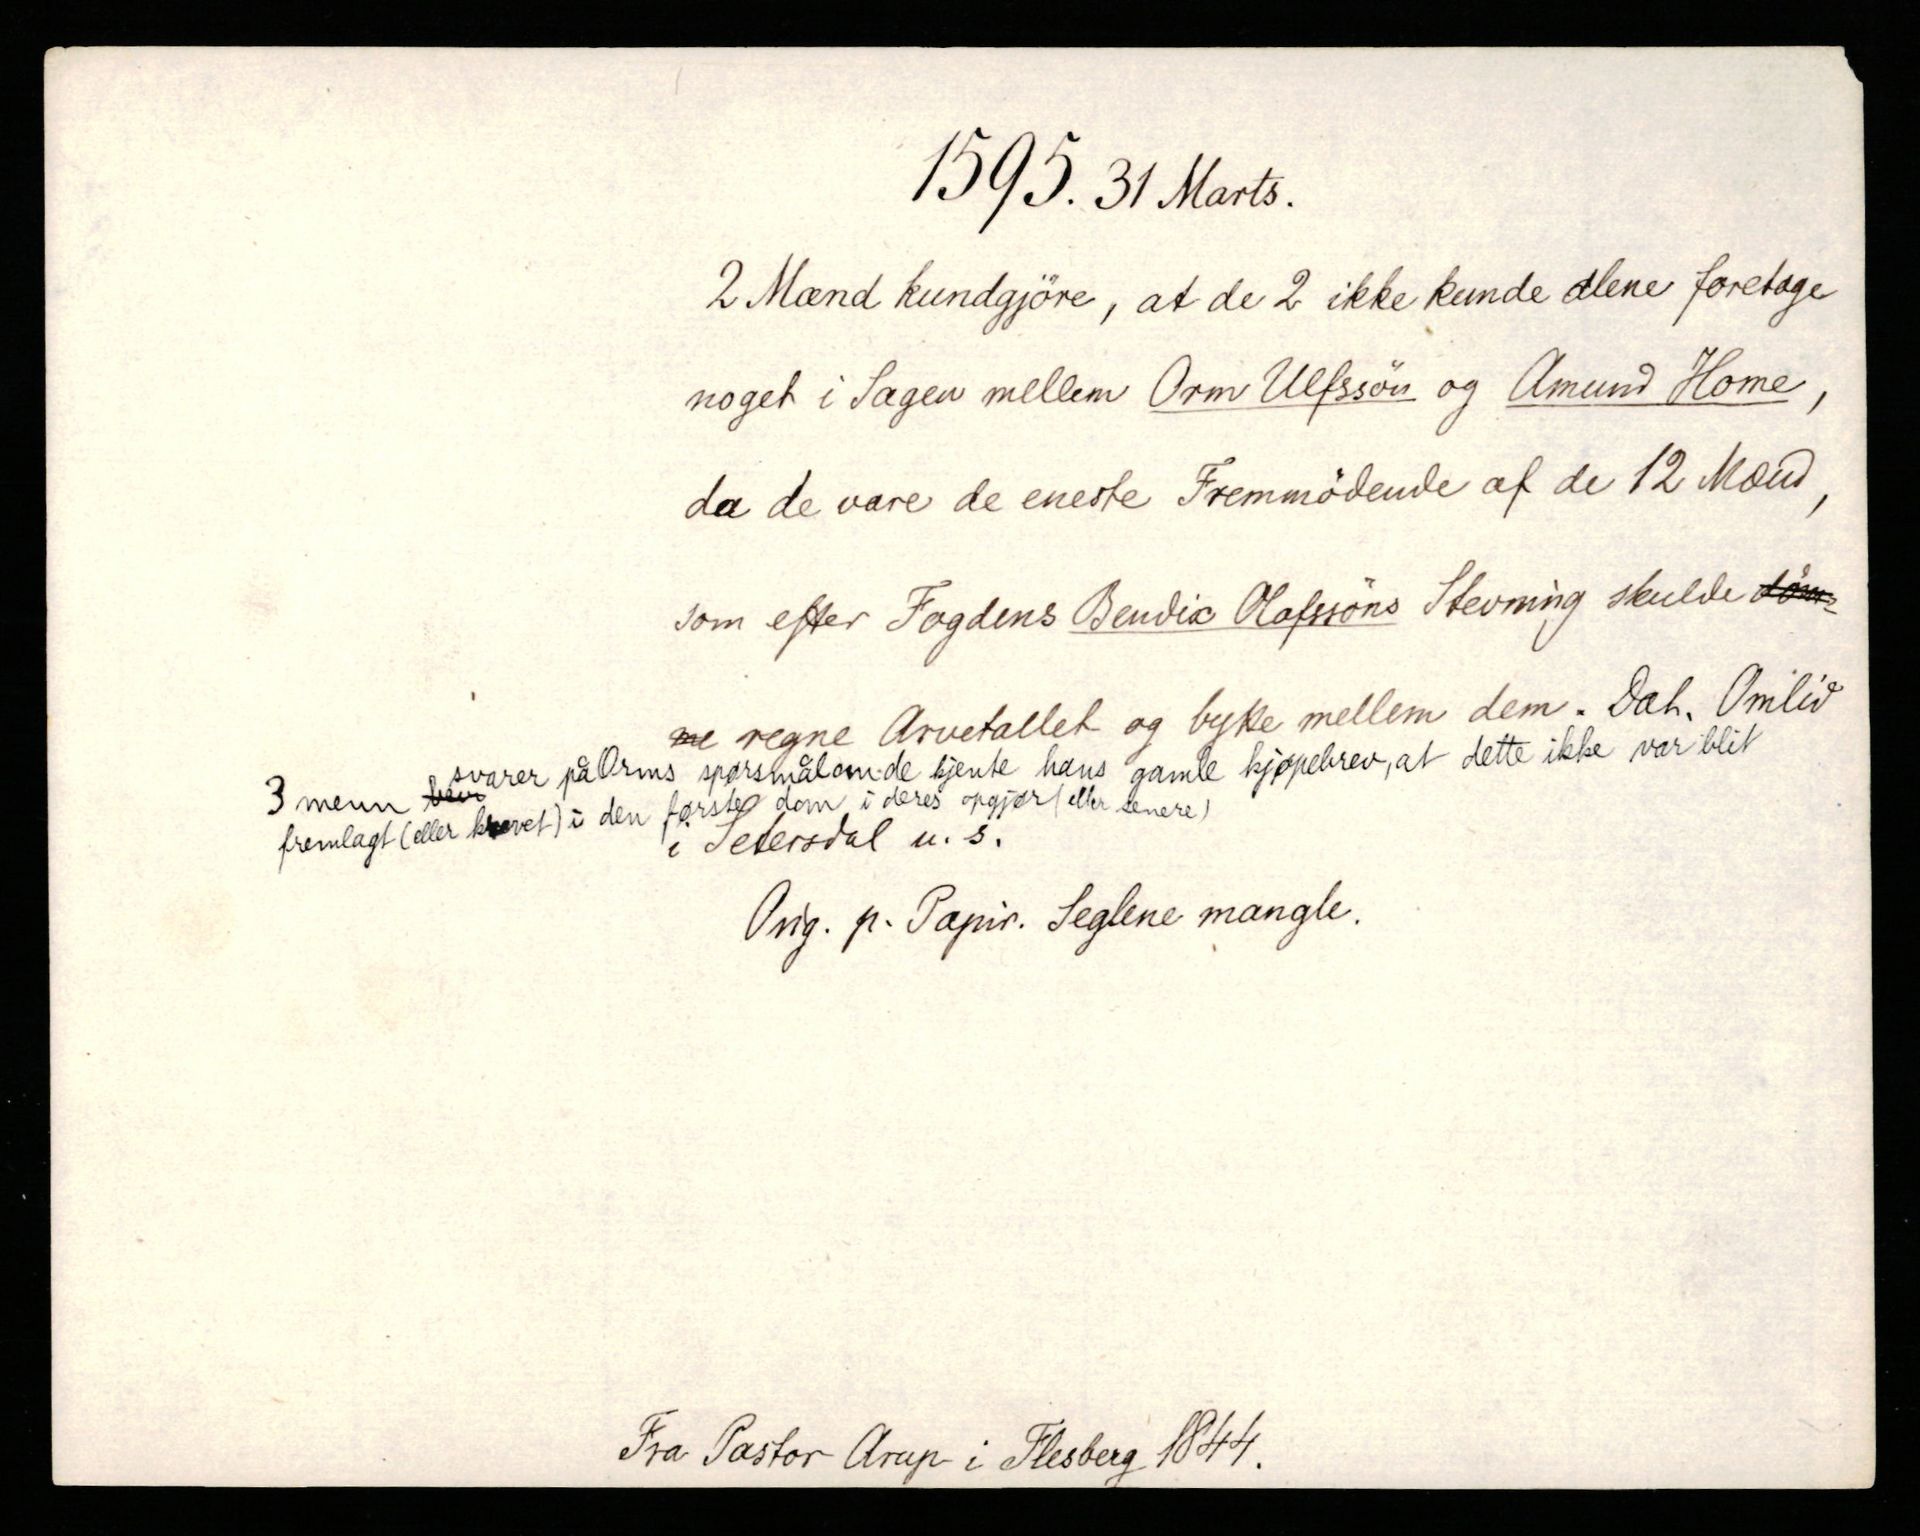 1595. 31 Marts.
2 Mænd kundgjöre, at de 2 ikke kunde alene foretage
noget i Sagen mellem Orm Ulfssön og Amund Home,
da de vare de eneste Fremmödende af de 12 Mænd,
som efter Fogdens Bendix Olafssöns Stevning skulde döm-
me regne Arvetallet og bytte mellem dem. Dat. Omlid
3 menn svarer på Orms spørsmål om de kjente hans gamle kjøpebrev, at dette ikke var blit
fremlagt (eller krevet) i den første dom i deres opgjør (eller senere)
i Setersdal u. s.
Orig. p. Papir. Seglene mangle.
Fra Pastor Arup i Flesberg 1844.